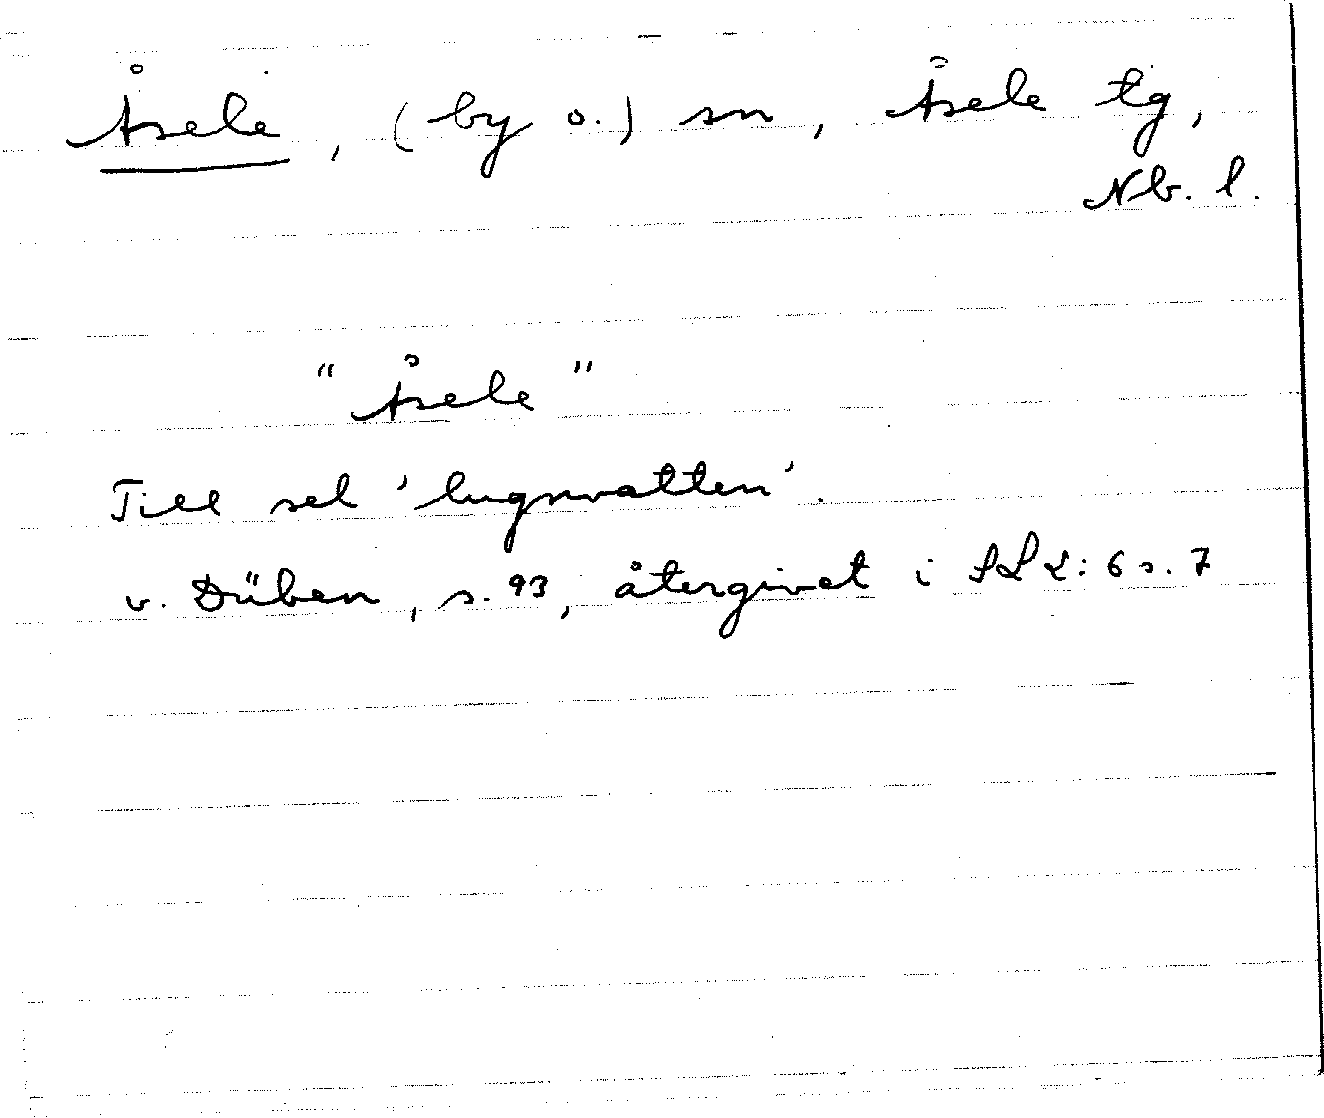 Åsele, (by o.) sn, Åsele tg,
Nb. l.
"Åsele"
Till sel 'lugnvatten'.
v. Düben, s. 93, återgivet i s. 7